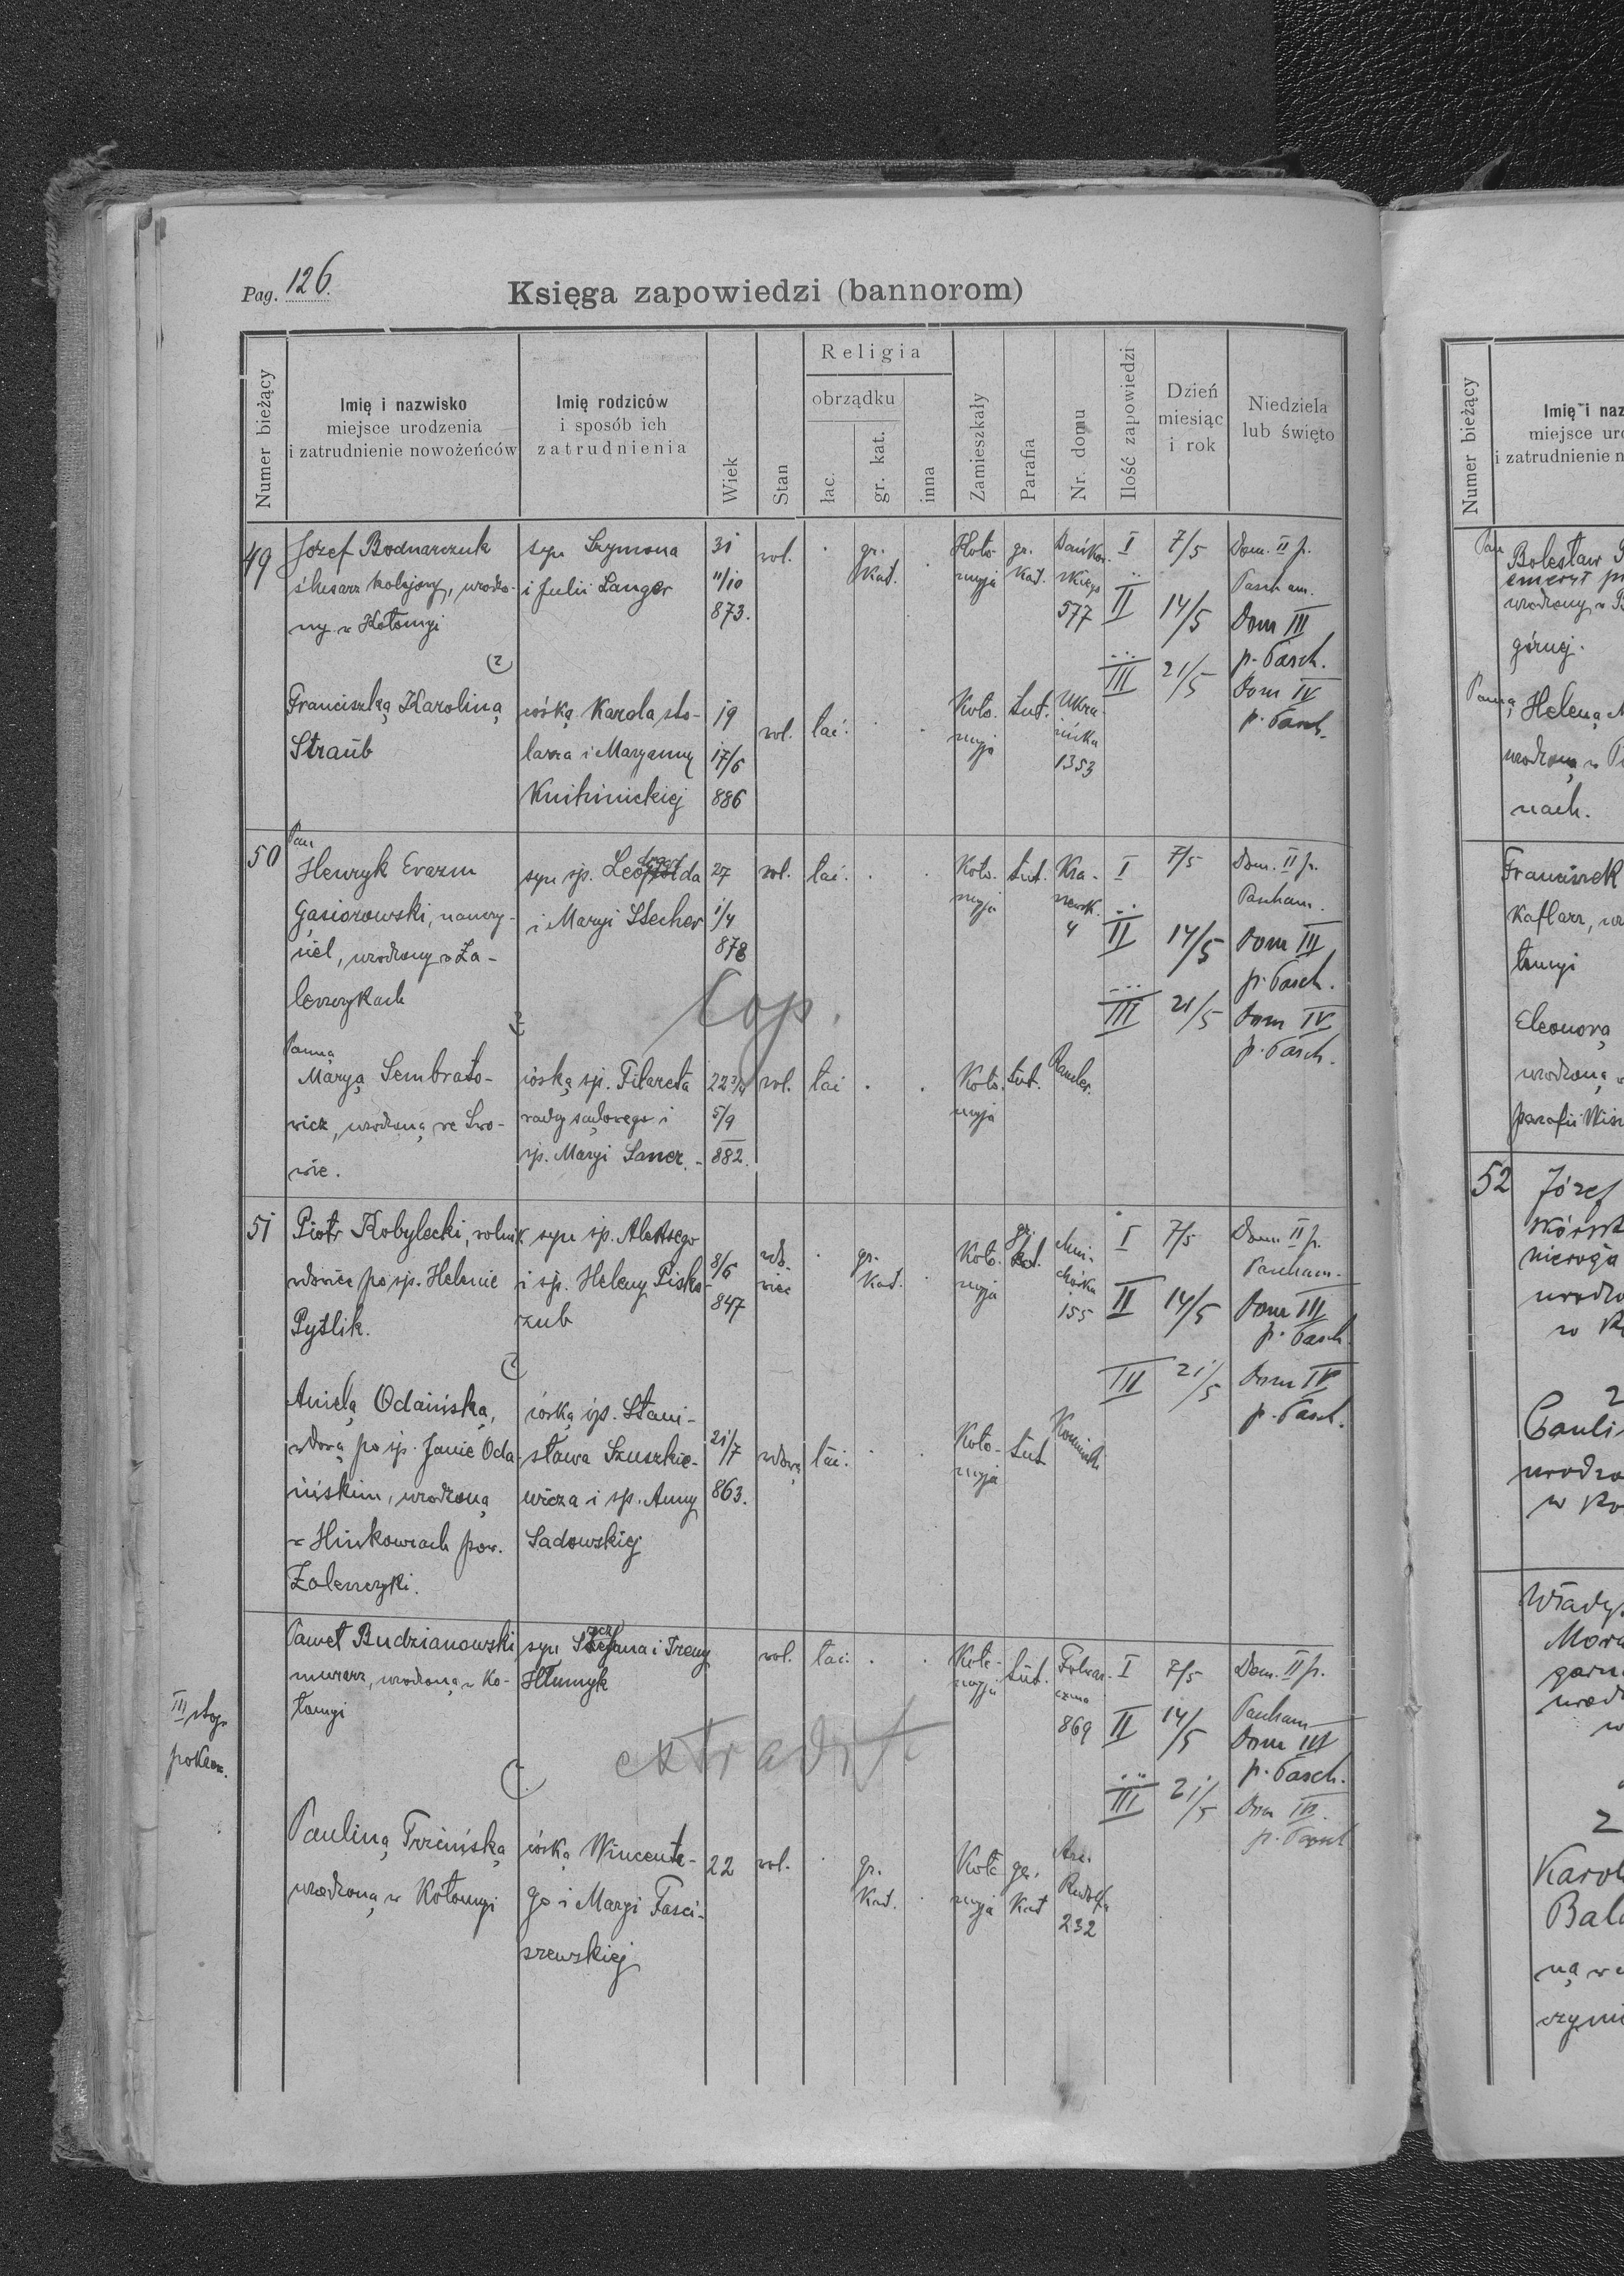 Pag. 126.
Księga zapowiedzi (bannorom)
Numer bieżący
Imię i nazwisko
miejsce urodzenia
i zatrudnienie nowożeńców
Imię rodziców
i sposób ich
zatrudnienia
Wiek
Stan
Religia
obrządku
łac.
gr. kat.
inna
Zamieszkały
Parafia
Nr. domu
Ilość zapowiedzi
Dzień
miesiąc
i rok
Niedziela
lub święto
49
Józef Bodnarczuk
ślusarz kolejowy, urodzo-
ny w Kołomyi
syn Szymona
i Julii Langer
31
11/10
873.
wol.
gr.
kat.
Koło-
myja
gr.
kat.
577
I 7/5 Dom. II p.
Pascham.
II 14/5 Dom III
p. Pasch.
III 21/5 Dom IV
p. Pasch.
Franciszką Karoliną
Straub
córką Karola sto-
larza i Maryanny
Knihinickiej
19
17/6
886
wol.
łac.
Koło-
myja
tut.
Ukra-
ińska
1353
50
Pan
Henryk Erazm
Gąsiorowski, nauczy-
ciel, urodzony w Za-
leszczykach
syn sp.
i Maryi Stecher
27
1/4
878
wol.
łac.
Koło-
myja
tut.
4
I 7/5 Dom. II p.
Pascham.
II 14/5 Dom III
p. Pasch.
III 21/5 Dom IV
p. Pasch.
cop.
Panną
Maryą Sembrato-
wicz, urodzoną we Lwo-
wie.
córką sp. Filareta
radcy sądowego i
sp. Maryi Saner.
22
5/9
882.
wol.
łac
Koło-
myja
tut.
51
Piotr Kobylecki, rolnik
wdowiec po sp. Helenie
Pytlik.
syn sp. Aleksego
i sp. Heleny Pisko-
zub
8/6
847
wdo-
wiec
gr.
kat.
Koło-
myja
gr.
kat.
155
I 7/5 Dom. II p.
Pascham.
II 14/5 Dom III
p. Pasch.
III 21/5 Dom IV
p. Pasch.
Anielą Odaińską,
wdową po sp. Janie Oda-
ińskim, urodzoną
w Hińkowcach pow.
Zaleszczyki.
córką sp. Stani-
sława Szuszkie-
wicza i sp. Anny
Sadowskiej
21/7
863.
wdową
łac.
Koło-
myja
tut.
III stop.
pokrew.
Paweł Budzianowski
murarz, urodzoną w Ko-
łomyi
syn i Ireny
Hłumyk
wol.
łac.
Koło-
myja
tut.
869
I 7/5 Dom. II p.
Pascham
II 14/5 Dom III
p. Pasch.
III 21/5 Dom IV.
p. Pasch
extradit
Pauliną Trzcińską
urodzoną w Kołomyi
córką Wincente-
go i Maryi Fasci-
szewskiej
22
wol.
gr.
kat.
Koło
myja
gr.
kat
Arc.
Rudolfa
232
Numer bieżący
Imię i naz
miejsce uro
i zatrudnienie n
Pan
Bolesław
emeryt
urodzony w
górnej.
Panną
Heleną
urodzoną w
nach.
Franciszek
kaflarz, ur
łomyi
Eleonorą
urodzoną
parafii
52
Józef
urodzo
w
2
Pauli
urodzo
w Ko
Włady
garn
2
Karol
ną w